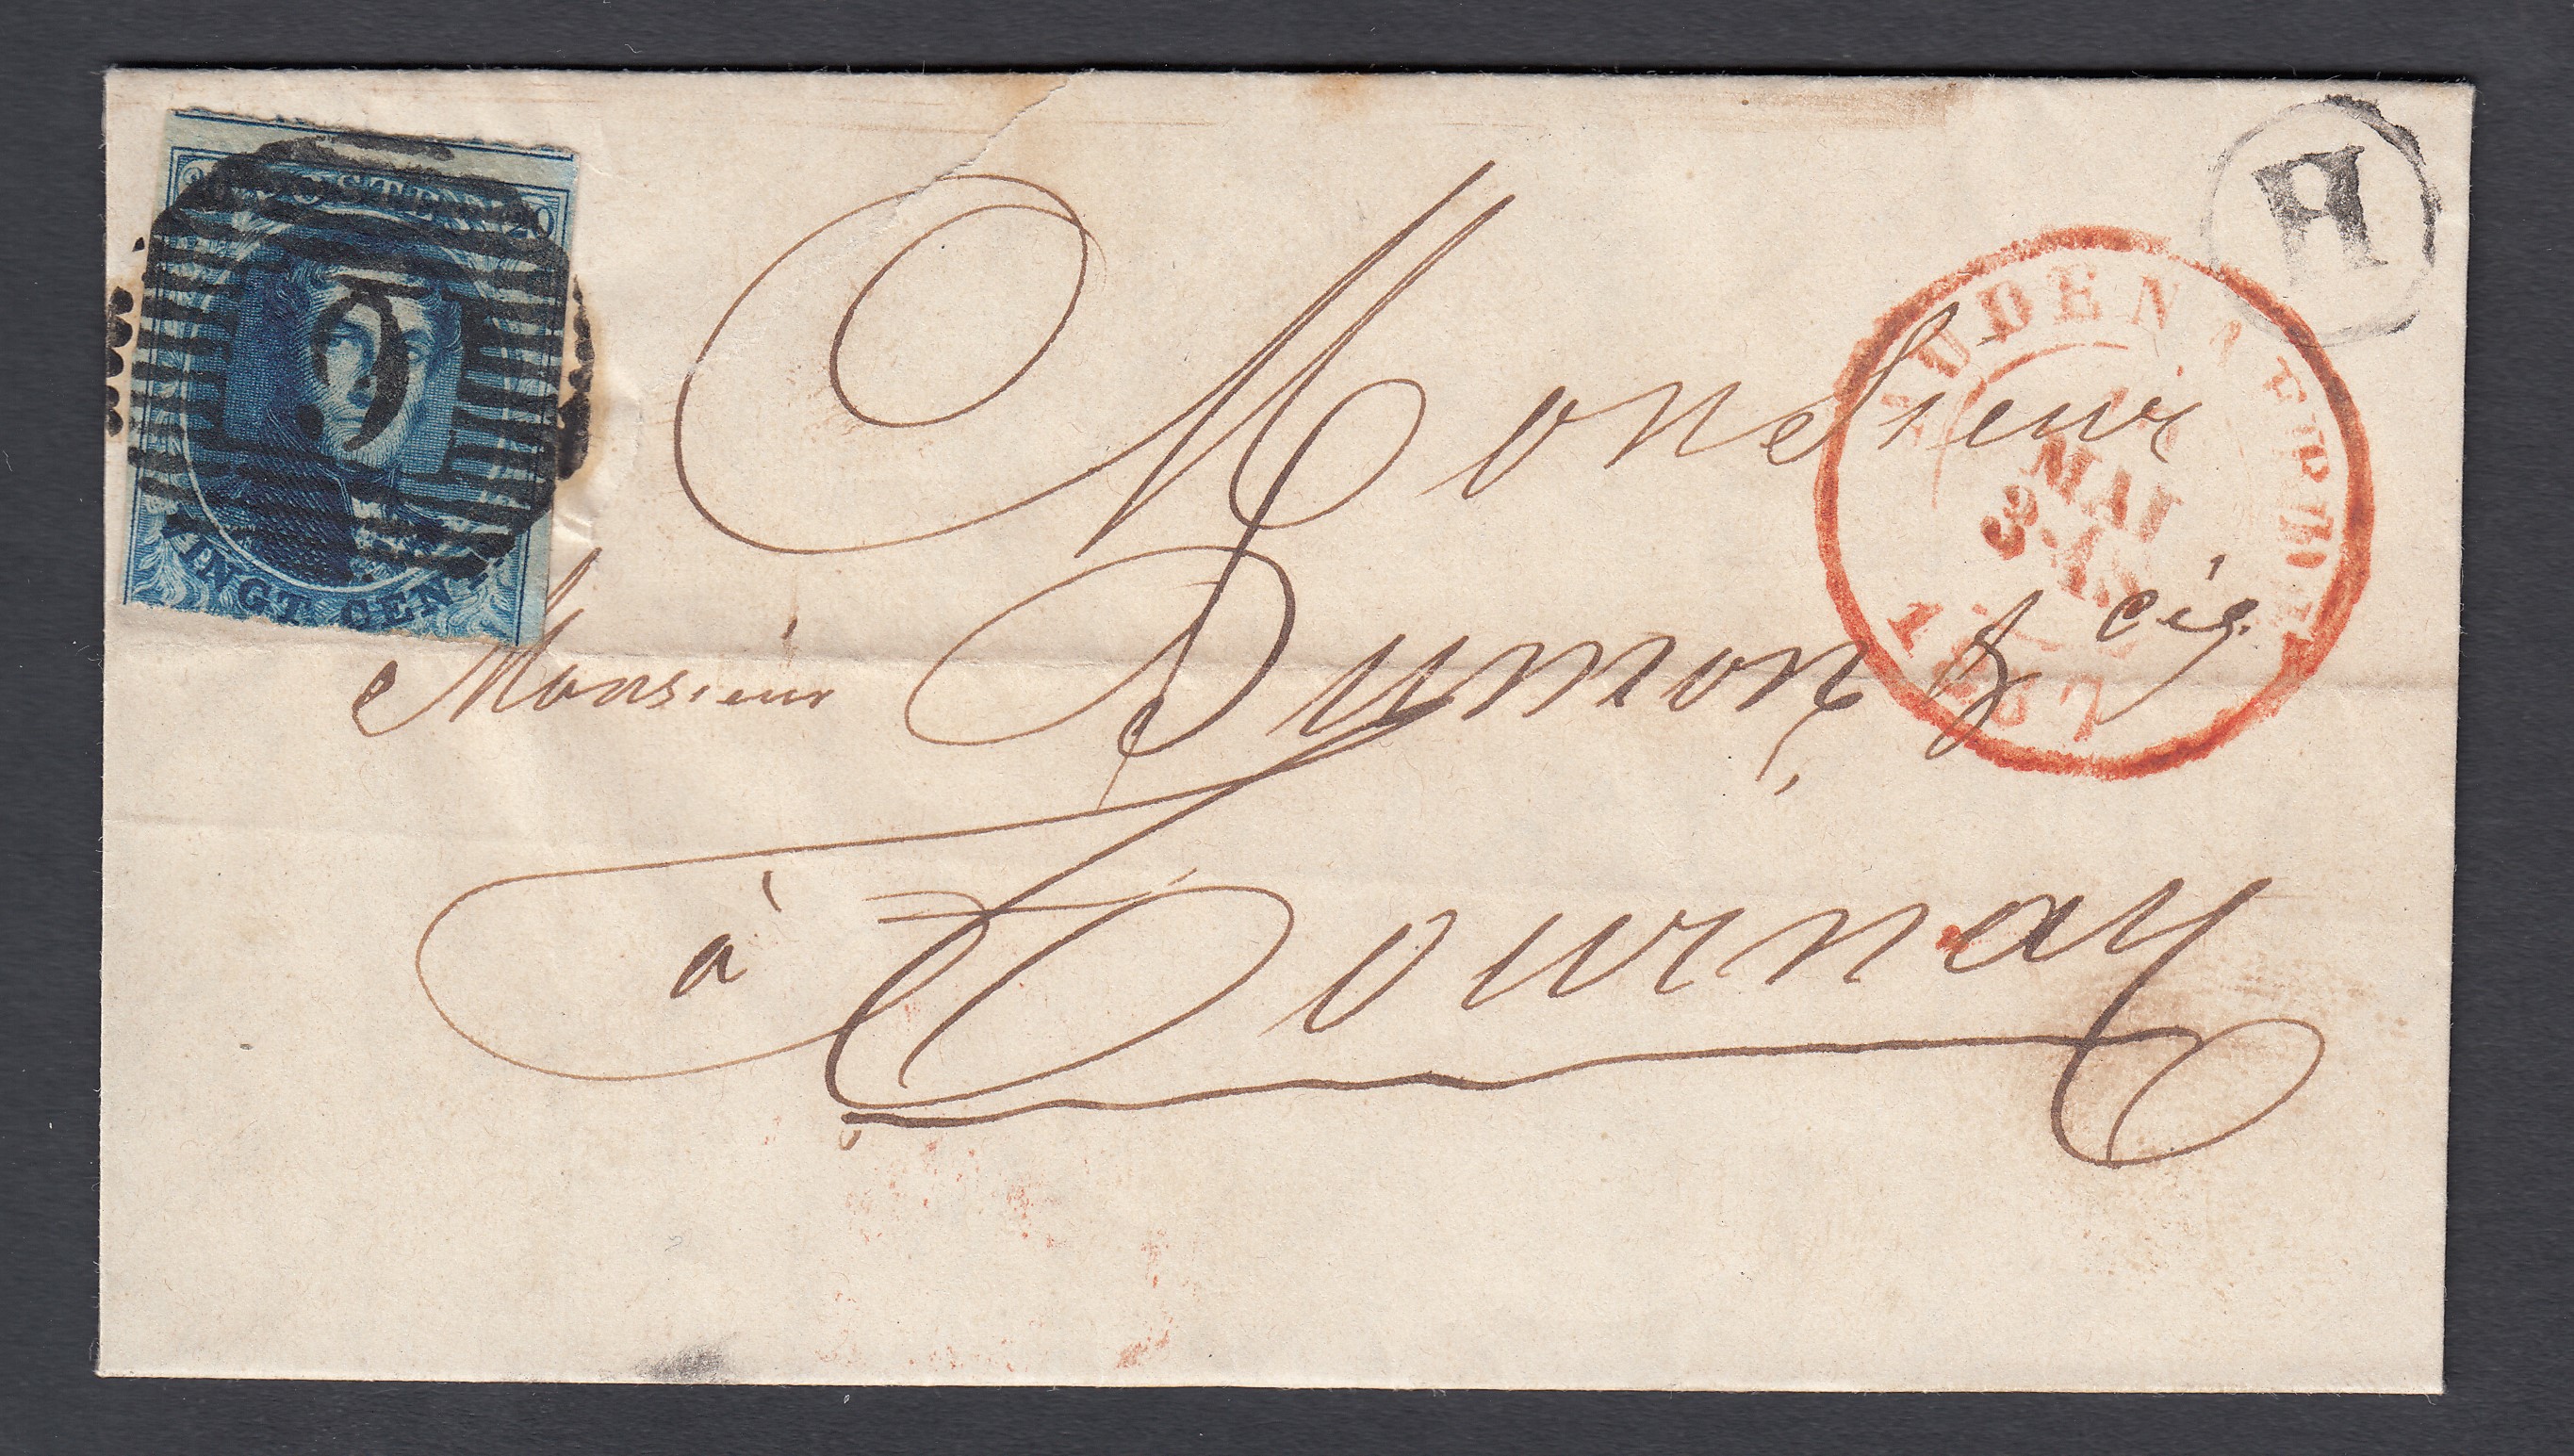 POSTES 20
9
VINGT CENT
H
AUDENAERDE
MAI
3
1857
Monsieur
Monsieur Dumon & Cie.
à Tournay